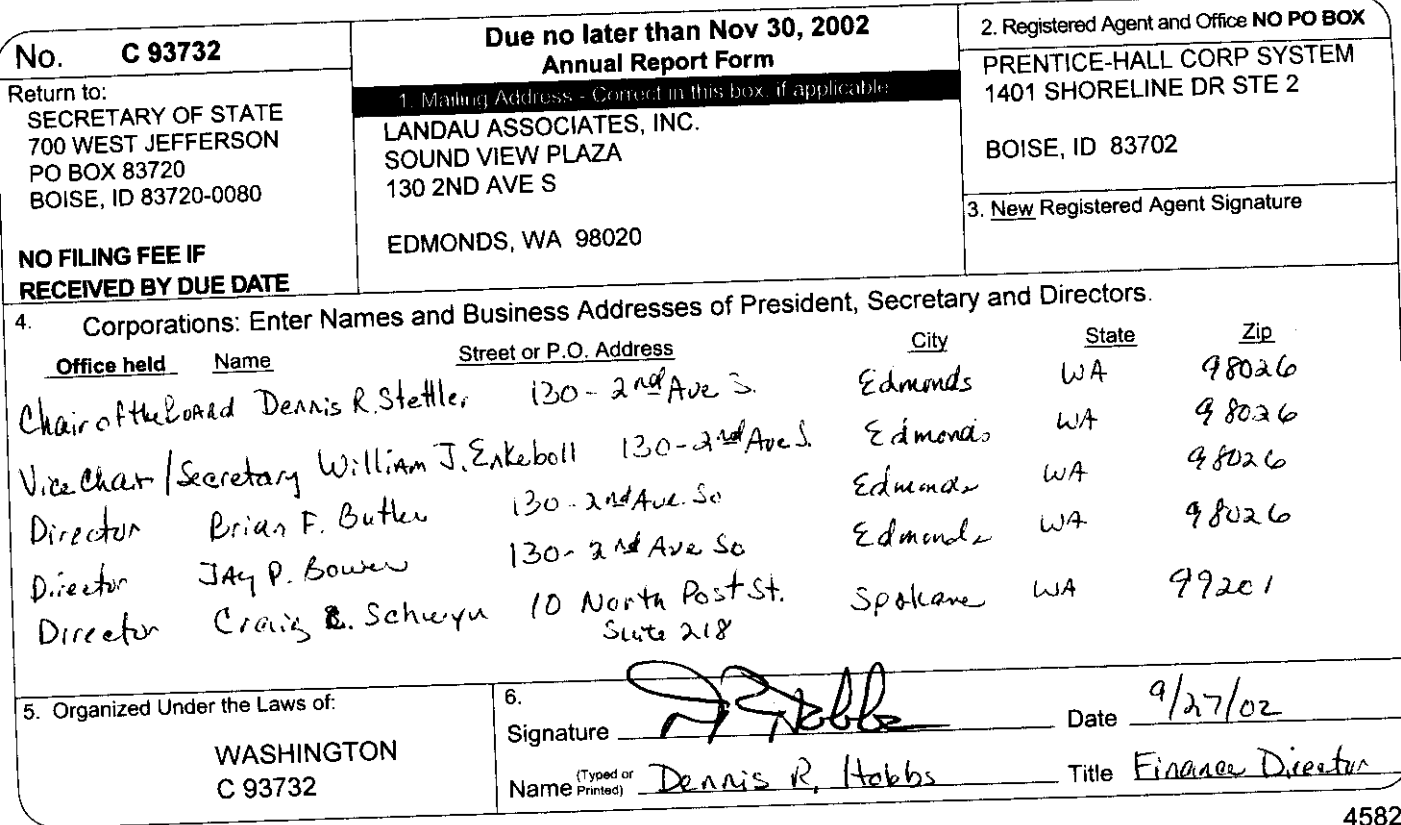 No. C 93732
Return to:
SECRETARY OF STATE
700 WEST JEFFERSON
PO BOX 83720
BOISE, ID 83720-0080
NO FILING FEE IF
RECEIVED BY DUE DATE
Due no later than Nov 30, 2002
Annual Report Form
1. Mailing Address - Correct in this box, if applicable
LANDAU ASSOCIATES, INC.
SOUND VIEW PLAZA
130 2ND AVE S
EDMONDS, WA 98020
2. Registered Agent and Office NO PO BOX
PRENTICE-HALL CORP SYSTEM
1401 SHORELINE DR STE 2
BOISE, ID 83702
3. New Registered Agent Signature
4. Corporations: Enter Names and Business Addresses of President, Secretary and Directors.
Office held Name Street or P.O. Address City State Zip
Chair of the Board Dennis R. Stettler 130 - 2nd Ave S. Edmonds WA 98026
Vice Chair / Secretary William J. Enkeboll 130 - 2nd Ave S. Edmonds WA 98026
Director Brian F. Butler 130 - 2nd Ave. So Edmonds WA 98026
Director JAy P. Bower 130 - 2nd Ave So Edmonds WA 98026
Director Craig Schwyn 10 North Post St. Spokane WA 99201
Suite 218
5. Organized Under the Laws of:
WASHINGTON
C 93732
6.
Signature Date 9/27/02
Name (Typed or Printed) Dennis R. Hobbs Title Finance Director
4582